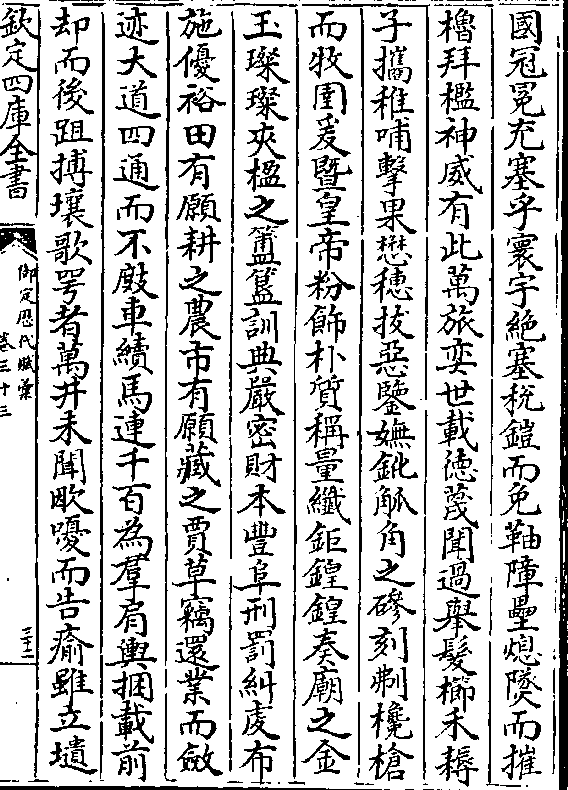 國冠冕充塞乎寰宇絶塞税鎧而免䩜障壘熄燧而摧
櫓拜檻神威有此萬旅奕世載德蔑聞過舉髮櫛禾耨
子攜稚哺擊果懋穗拔惡鑒嫵鈋觚角之磣刻刜欃槍
而牧圉爰暨皇帝粉飾朴質稱量纎鉅鍠鍠奏廟之金
玉璨璨夾楹之簠簋訓典嚴密財本豐阜刑罰糾虔布
施優裕田有願耕之農市有願藏之賈草竊還業而斂
迹大道四通而不車續馬連千百為羣肩輿捆載前
却而後跙搏壤歌咢者萬井未聞嚘而告瘉雖立壝
欽定四庫全書
御定歷代賦彙
卷三十三
三十二